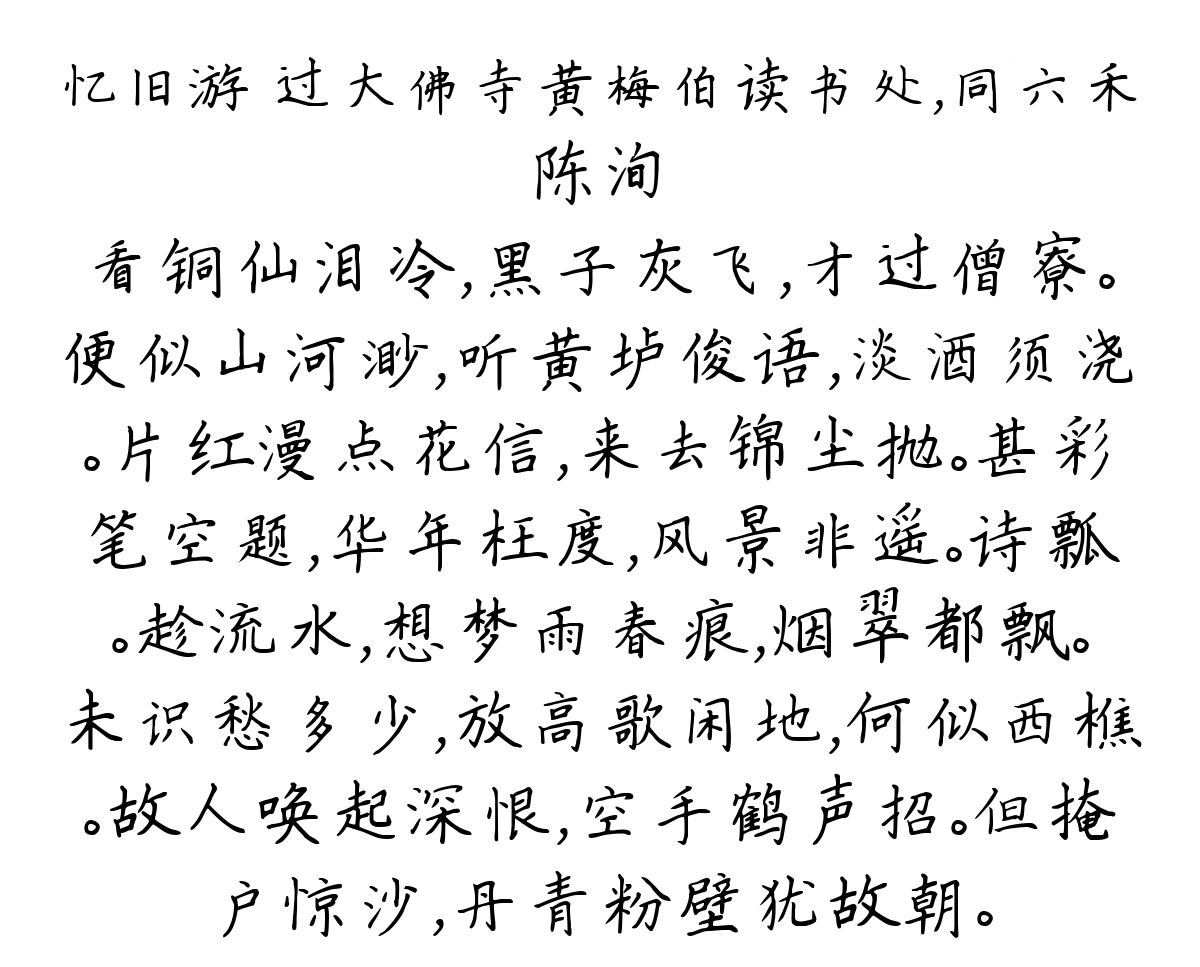 忆旧游 过大佛寺黄梅伯读书处,同六禾
陈洵
看铜仙泪冷,黑子灰飞,才过僧寮。
便似山河渺,听黄垆俊语,淡酒须浇
。片红漫点花信,来去锦尘抛。甚彩
笔空题,华年枉度,风景非遥。诗瓢
。趁流水,想梦雨春痕,烟翠都飘。
未识愁多少,放高歌闲地,何似西樵
。故人唤起深恨,空手鹤声招。但掩
户惊沙,丹青粉壁犹故朝。